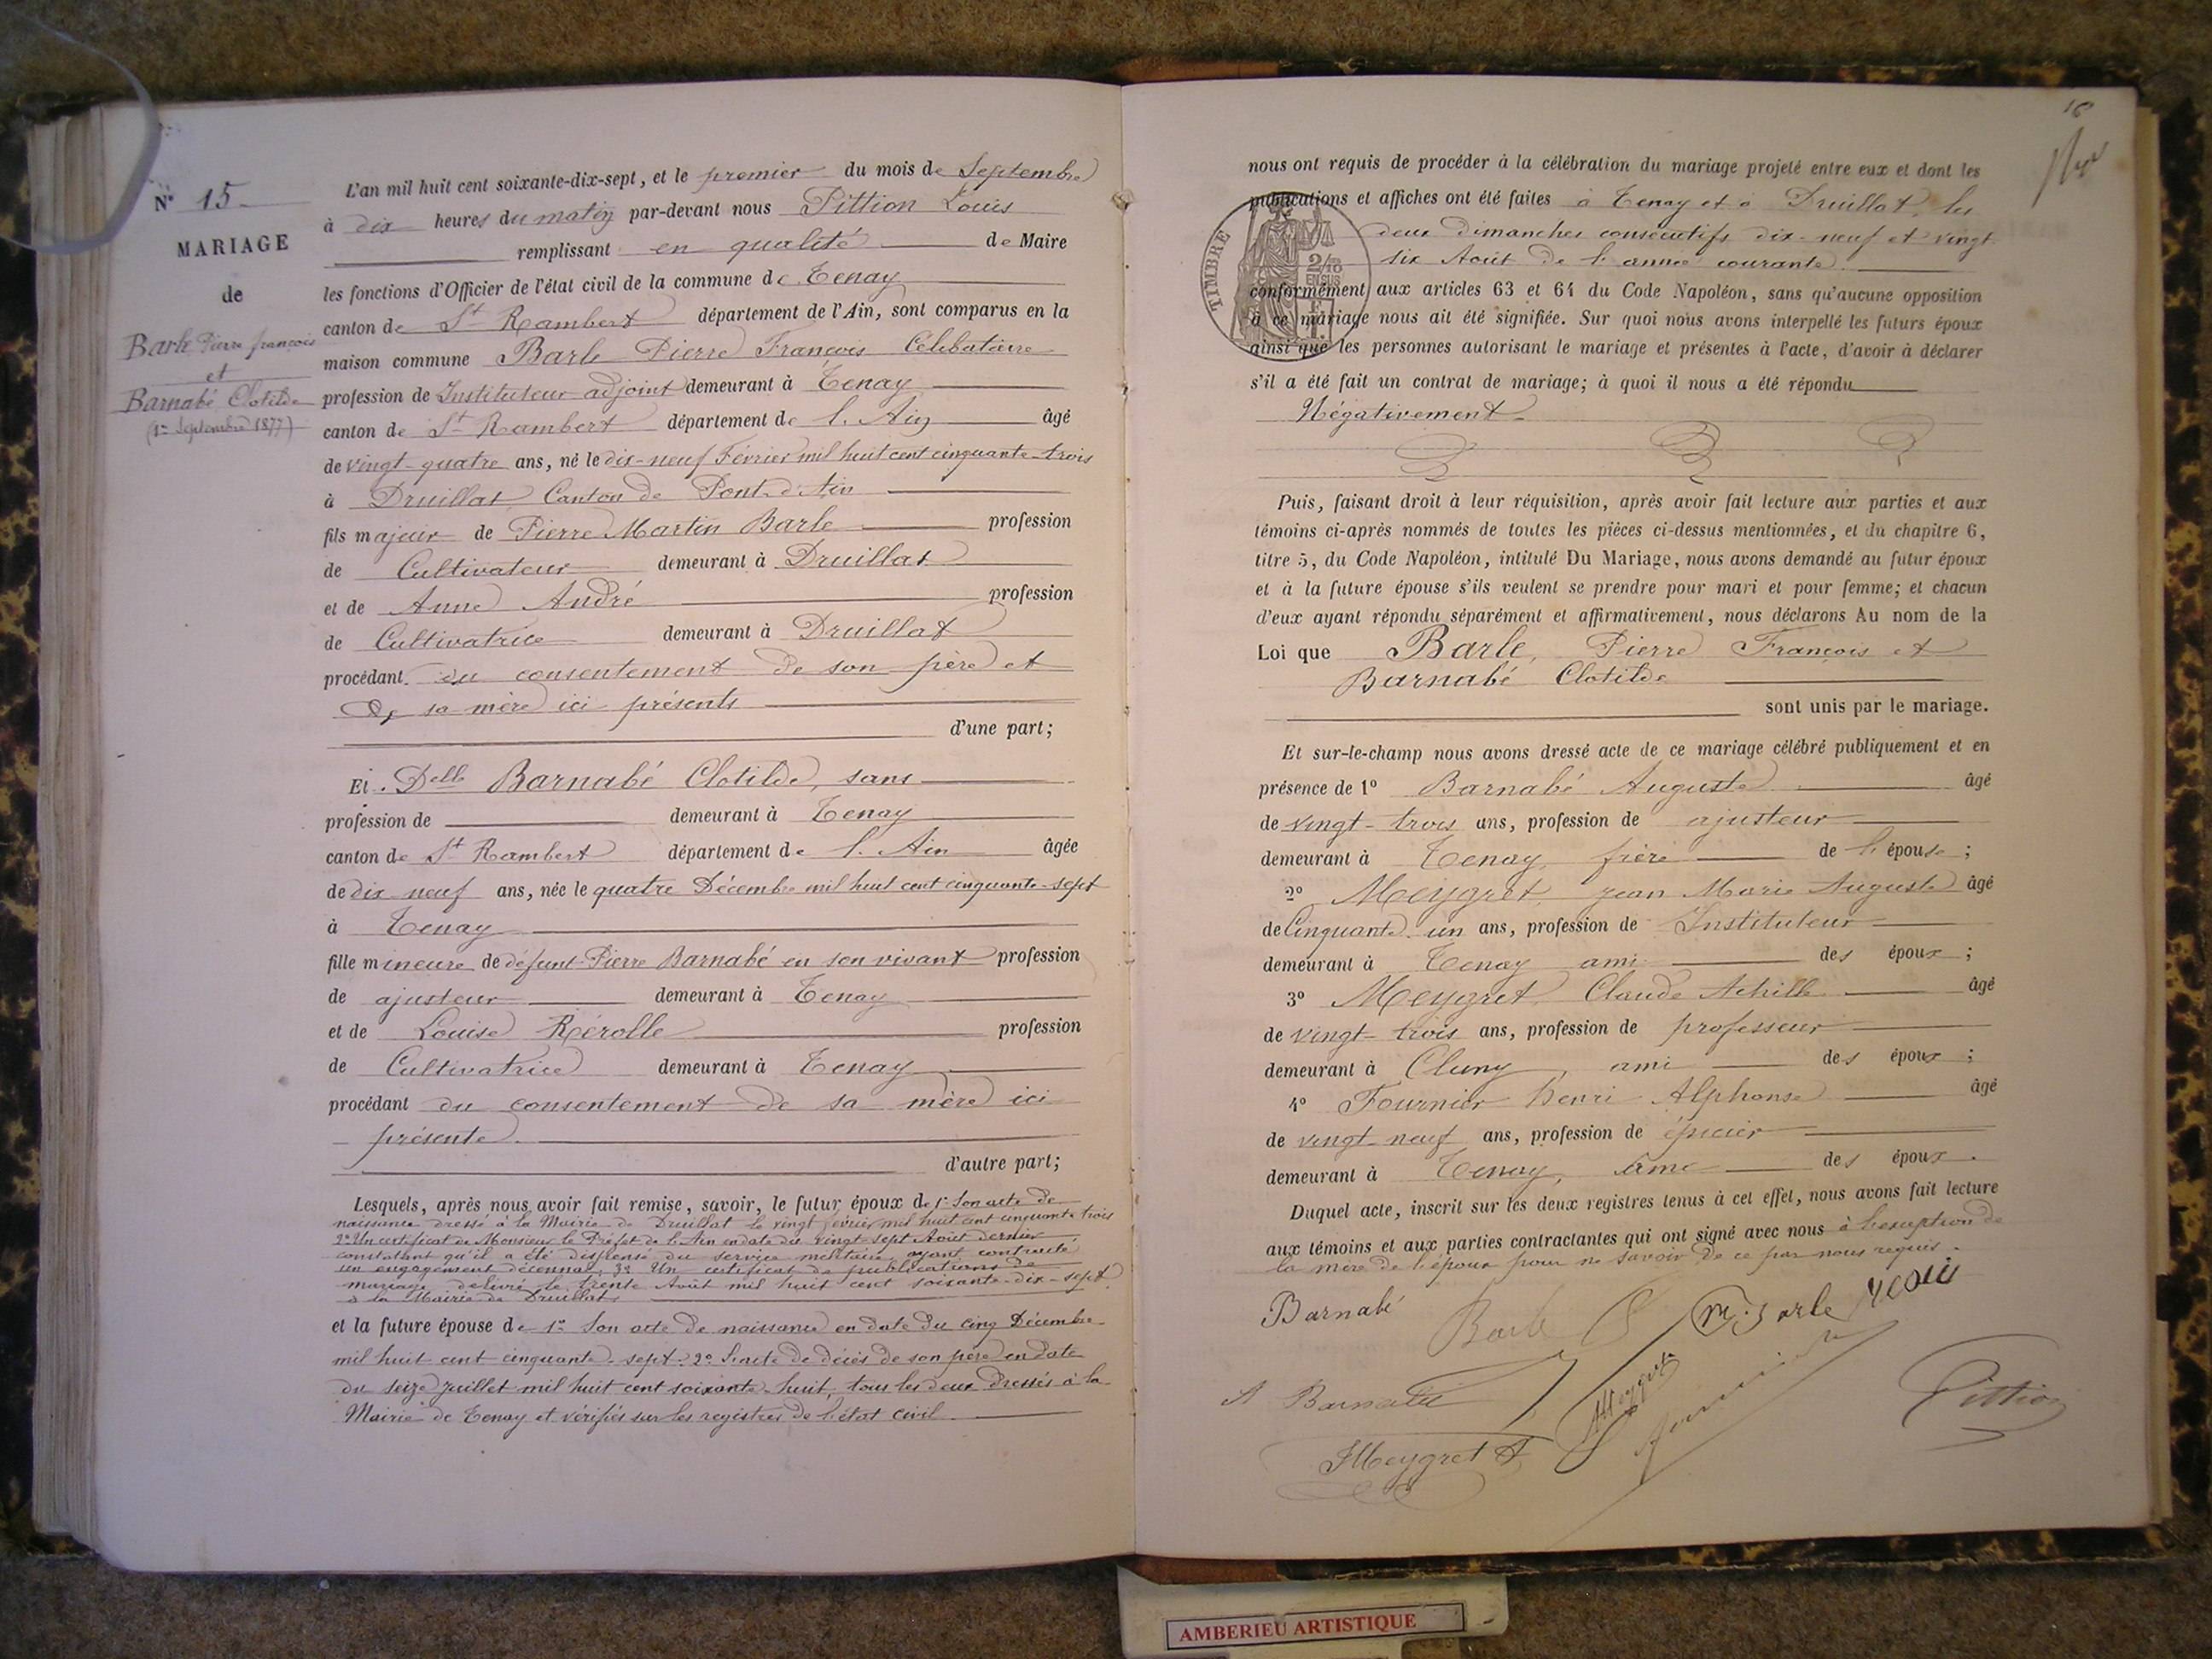 Nº 15
MARIAGE
de
Barle Pierre françois
et
Barnabé Clotilde
(1er Septembre 1877)
L'an mil huit cent soixante-dix-sept, et le premier du mois de Septembre
à dix heures du matin par-devant nous Pittion Louis
remplissant en qualité de Maire
les fonctions d'Officier de l'état civil de la commune de Tenay
canton de St Rambert département de l'Ain, sont comparus en la
maison commune Barle Pierre François Célibataire
profession de Instituteur adjoint demeurant à Tenay
canton de St Rambert département de l'Ain âgé
de vingt-quatre ans, né le dix-neuf Février mil huit cent cinquante-trois
à Druillat Canton de Pont-d'Ain
fils majeur de Pierre Martin Barle profession
de Cultivateur demeurant à Druillat
et de Anne André profession
de Cultivatrice demeurant à Druillat
procédant du consentement de son père et
de sa mère ici présents
d'une part;
Et Delle Barnabé Clotilde, sans
profession de demeurant à Tenay
canton de St Rambert département de l'Ain âgée
de dix neuf ans, née le quatre Décembre mil huit cent cinquante-sept
à Tenay
fille mineure de défunt Pierre Barnabé en son vivant profession
de ajusteur demeurant à Tenay
et de Louise Rérolle profession
de Cultivatrice demeurant à Tenay
procédant du consentement de sa mère ici
présente.
d'autre part;
Lesquels, après nous avoir fait remise, savoir, le futur époux de 1º Son acte de
naissance dressé à la Mairie de Druillat le vingt février mil huit cent cinquante trois
2º Un certificat de Monsieur le Préfet de l'Ain en date du vingt-sept Août dernier
constatant qu'il a été dispensé du service militaire ayant contracté
un engagement décennal, 3º Un certificat de publications de
mariage délivré le trente Août mil huit cent soixante-dix-sept
à la Mairie de Druillat
et la future épouse de 1º Son acte de naissance en date du cinq Décembre
mil huit cent cinquante-sept. 2º L'acte de décès de son père en date
du seize juillet mil huit cent soixante-huit, tous les deux dressés à la
Mairie de Tenay et vérifiés sur les registres de l'état civil.
16
nous ont requis de procéder à la célébration du mariage projeté entre eux et dont les
publications et affiches ont été faites à Tenay et à Druillat, les
deux dimanches consécutifs dix-neuf et vingt
six Août de l'année courante
TIMBRE
2/10
EN SUS
conformément aux articles 63 et 64 du Code Napoléon, sans qu'aucune opposition
à ce mariage nous ait été signifiée. Sur quoi nous avons interpellé les futurs époux
ainsi que les personnes autorisant le mariage et présentes à l'acte, d'avoir à déclarer
s'il a été fait un contrat de mariage; à quoi il nous a été répondu
Négativement
Puis, faisant droit à leur réquisition, après avoir fait lecture aux parties et aux
témoins ci-après nommés de toutes les pièces ci-dessus mentionnées, et du chapitre 6,
titre 5, du Code Napoléon, intitulé Du Mariage, nous avons demandé au futur époux
et à la future épouse s'ils veulent se prendre pour mari et pour femme; et chacun
d'eux ayant répondu séparément et affirmativement, nous déclarons Au nom de la
Loi que Barle, Pierre François et
Barnabé Clotilde
sont unis par le mariage.
Et sur-le-champ nous avons dressé acte de ce mariage célébré publiquement et en
présence de 1º Barnabé Auguste âgé
de vingt-trois ans, profession de ajusteur
demeurant à Tenay frère de l'épouse;
2º Meygret, Jean Marie Auguste âgé
de Cinquante un ans, profession de Instituteur
demeurant à Tenay ami des époux;
3º Meygret Claude Achille âgé
de vingt-trois ans, profession de professeur
demeurant à Cluny, ami des époux;
4º Fournier Henri Alphonse âgé
de vingt-neuf ans, profession de épicier
demeurant à Tenay, ami des époux.
Duquel acte, inscrit sur les deux registres tenus à cet effet, nous avons fait lecture
aux témoins et aux parties contractantes qui ont signé avec nous à l'exception de
la mère de l'époux pour ne savoir de ce par nous requis.
Barnabé Barle m. barle
A Barnabé Meygret Fournier Pittion
Meygret A
AMBERIEU ARTISTIQUE